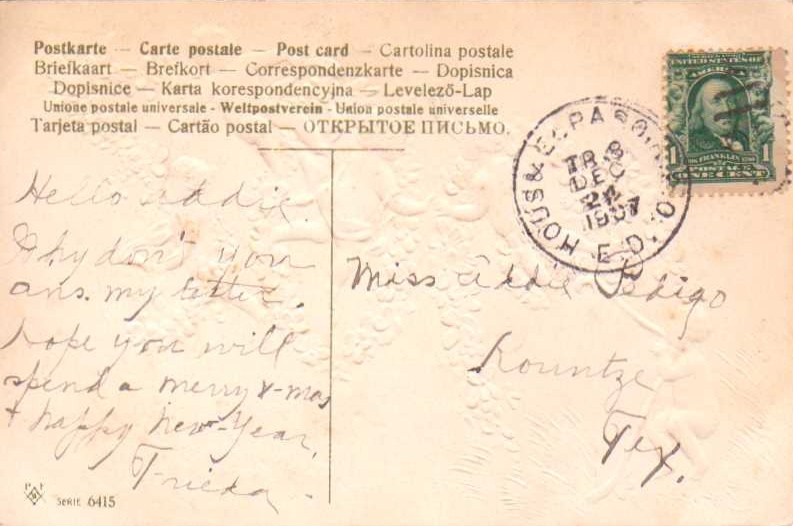 Postkarte — Carte postale — Post card — Cartolina postale
Briefkaart — Brefkort — Correspondenzkarte — Dopisnica
Dopisnice — Karta korespondencyjna — Levelező-Lap
Unione postale universale - Weltpostverein - Union postale universelle
Tarjeta postal — Cartão postal — ОТКРЫТОЕ ПИСЬМО.
Hello Addie.
Why don't you
ans. my letter.
Hope you will
spend a merry x-mas
+ happy New-Year,
Frieda.
SERIE 6415
HOUS & EL PASO. R.P.O.
TR. 8
DEC
24
1907
E.D.
UNITED STATES OF
AMERICA
FRANKLIN
1 1
POSTAGE
ONE CENT
Miss Addie Pedigo
Kountze
Tex.